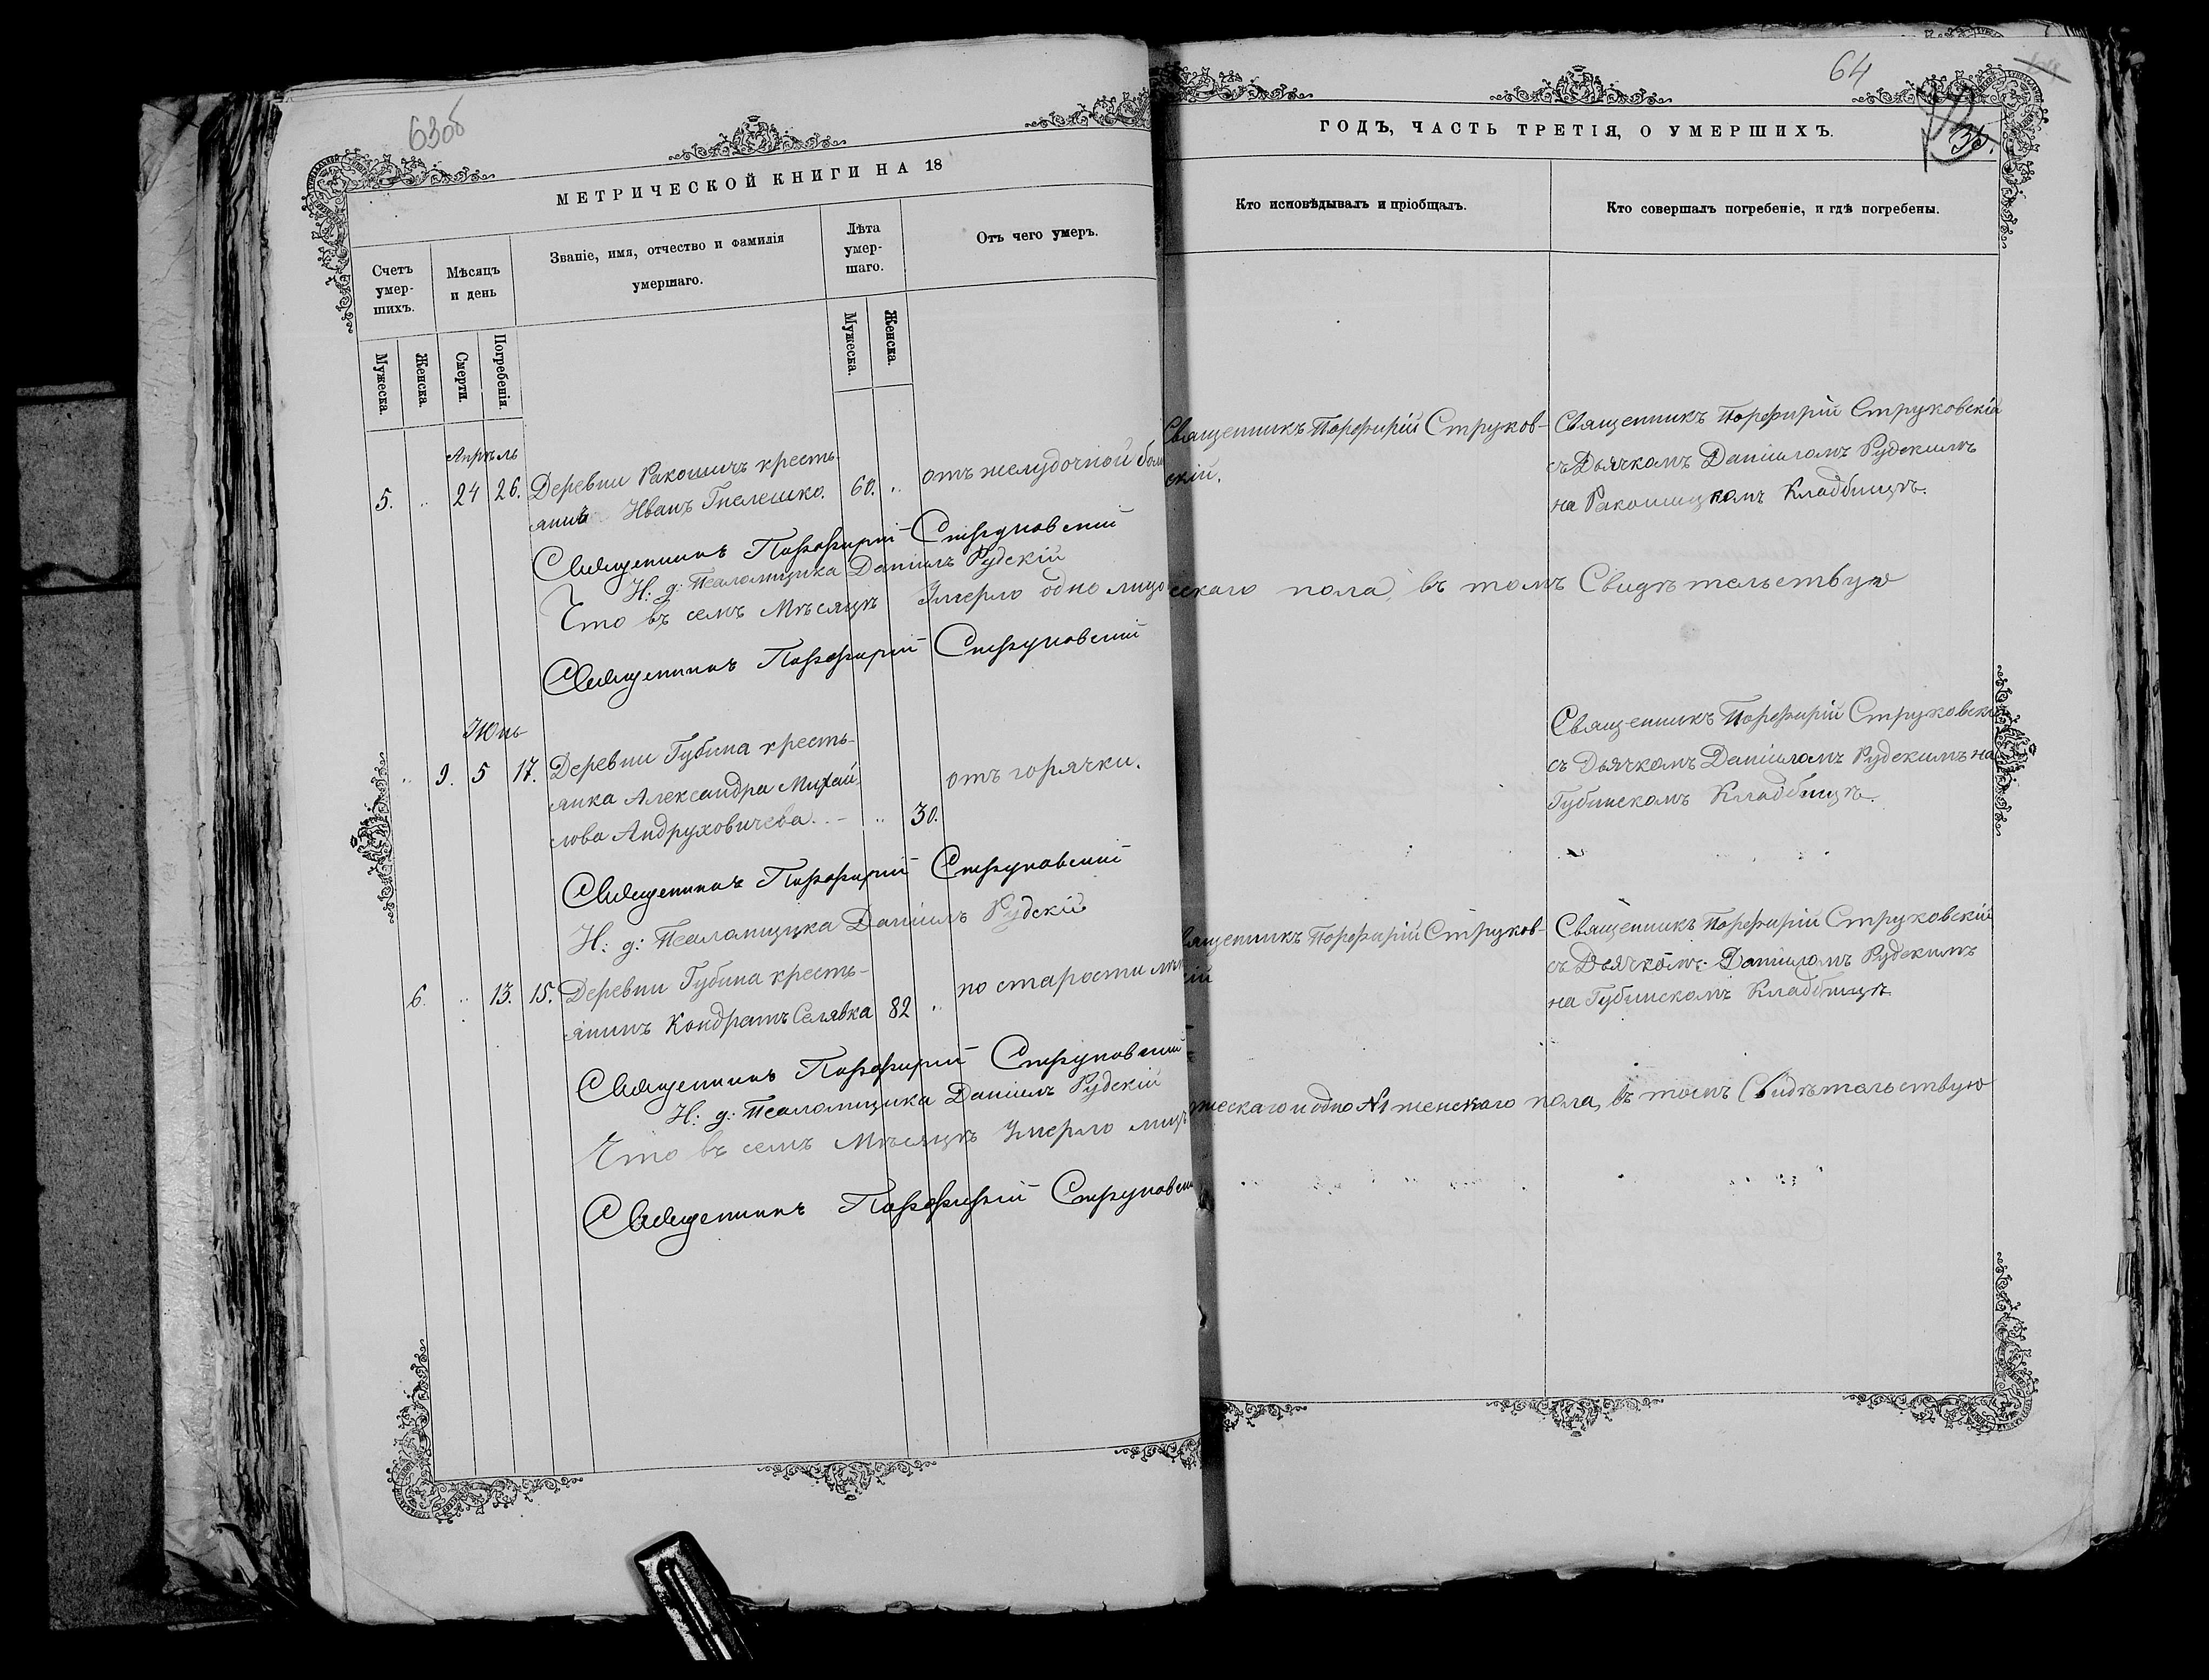 63об
МЕТРИЧЕСКОЙ КНИГИ НА 18
Счетъ умер-
шихъ.
Мѣсяцъ
и день
Званіе, имя, отчество и фамилія
умершаго.
Лѣта
умер-
шаго.
Отъ чего умеръ.
Мужеска.
Женска.
Смерти.
Погребенія.
Мужеска.
Женска.
Апрѣль
5. „ 24 26. Деревни Ракошичъ кресть-
янинъ Иванъ Гнелешко. 60. „ отъ желудочной
Священникъ Порфирій Струковскій
И: д: Псаломщика Даніилъ Рудскій
Что въ семъ Мѣсяцѣ Умерло одно лицо
Священникъ Порфирій Струковскій
Іюнь
„ 9. 5 17. Деревни Губина кресть-
янка Александра Михай-
лова Андруховичева. „ 30. отъ горячки.
Священникъ Порфирій Струковскій
И: д: Псаломщика Даніилъ Рудскій
6. „ 13. 15. Деревни Губина кресть-
янинъ Кондратъ Селявка 82 „ по старости
Священникъ Порфирій Струковскій
И: д: Псаломщика Даніилъ Рудскій
Что въ семъ Мѣсяцѣ Умерло
Священникъ Порфирій
64
ГОДЪ, ЧАСТЬ ТРЕТІЯ, О УМЕРШИХЪ.
35.
Кто исповѣдывалъ и пріобщалъ.
Кто совершалъ погребеніе, и гдѣ погребены.
Священникъ Порфирій Струков-
скій.
Священникъ Порфирій Струковскій
съ Дьячкомъ Даніиломъ Рудскимъ
на Ракошицкомъ Кладбищѣ.
ескаго пола, въ томъ Свидѣтельствую
Священникъ Порфирій
съ Дьячкомъ Даніиломъ Рудскимъ на
Губинскомъ Кладбищѣ.
Порфирій Струков-
ій
Священникъ Порфирій Струковскій
съ Дьячкомъ Даніиломъ Рудскимъ
на Губинскомъ Кладбищѣ
жескаго и одно №1 женскаго пола, въ томъ Свидѣтельствую